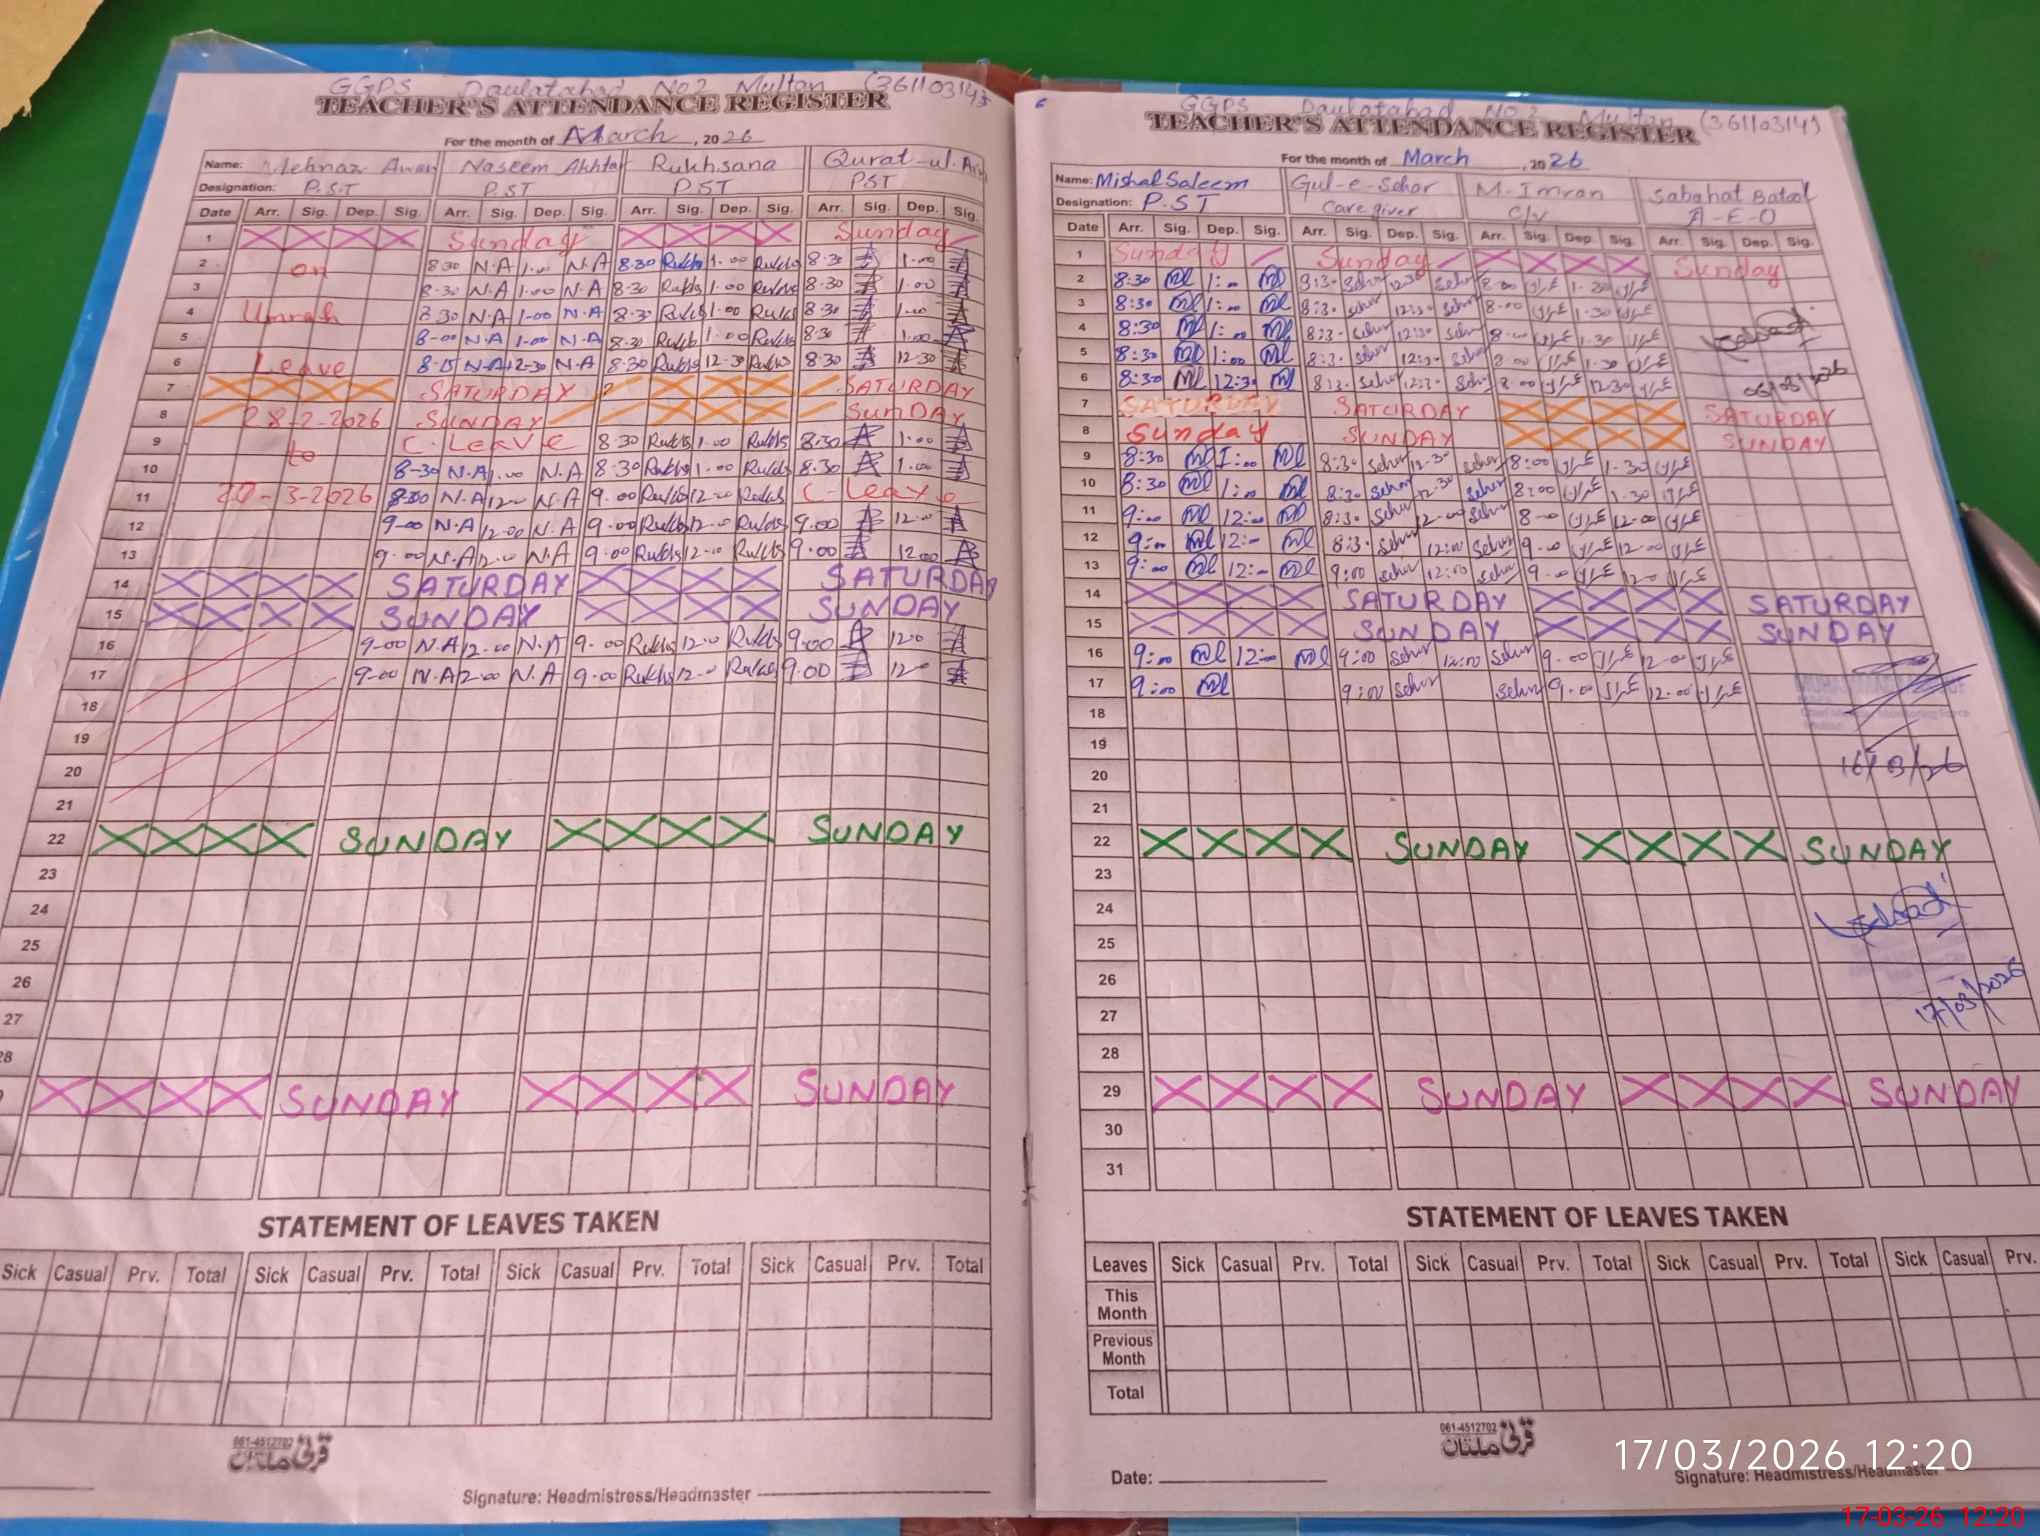 GGPS Daulatabad No2 Multan (36110314)
TEACHER'S ATTENDANCE REGISTER
For the month of March, 2026
Name: Mehnaz Awan Naseem Akhtar Rukhsana Qurat-ul-Ain
Designation: P.S.T P.S.T PST PST
Date Arr. Sig. Dep. Sig. Arr. Sig. Dep. Sig. Arr. Sig. Dep. Sig. Arr. Sig. Dep. Sig.
1 Sunday Sunday
2 on 8:30 N.A 1.00 N.A 8.30 Rukhs 1.00 Rukhs 8.30 1.00
3 8-30 N.A 1.00 N.A 8.30 Rukhs 1.00 Rukhs 8.30 1.00
4 Umrah 8.30 N.A 1-00 N.A 8.30 Rukhs 1.00 Rukhs 8.30 1.00
5 8-00 N.A 1-00 N.A 8.30 Rukhs 1.00 Rukhs 8.30 1.00
6 Leave 8-15 N.A 12-30 N.A 8.30 Rukhs 12-30 Rukhs 8.30 12-30
7 SATURDAY SATURDAY
8 28-2-2026 SUNDAY SUNDAY
9 to C-LEAVE 8.30 Rukhs 1.00 Rukhs 8.30 1.00
10 8-30 N.A 1.00 N.A 8.30 Rukhs 1.00 Rukhs 8.30 1.00
11 20-3-2026 N.A 12.00 N.A 9.00 Rukhs 12-00 Rukhs C-Leave
12 9-00 N.A 12-00 N.A 9.00 Rukhs 12-00 Rukhs 9.00 12-00
13 9.00 N.A 12.00 N.A 9.00 Rukhs 12-00 Rukhs 9.00 12.00
14 SATURDAY SATURDAY
15 SUNDAY SUNDAY
16 9-00 N.A 12-00 N.A 9.00 Rukhs 12-00 Rukhs 9.00 12.0
17 9-00 N.A 12-00 N.A 9.00 Rukhs 12-00 Rukhs 9.00 12
18
19
20
21
22 SUNDAY SUNDAY
23
24
25
26
27
28
SUNDAY SUNDAY
STATEMENT OF LEAVES TAKEN
Sick Casual Prv. Total Sick Casual Prv. Total Sick Casual Prv. Total Sick Casual Prv. Total
061-4512702
قرنی ملتان
Signature: Headmistress/Headmaster
6
GGPS Daulatabad No 2 Multan (36110314)
TEACHER'S ATTENDANCE REGISTER
For the month of March, 2026
Name: Mishal Saleem Gul-e-Sehar M. Imran Sabahat Batool
Designation: P.S.T Care giver C/V A-E-O
Date Arr. Sig. Dep. Sig. Arr. Sig. Dep. Sig. Arr. Sig. Dep. Sig. Arr. Sig. Dep. Sig.
1 Sunday Sunday Sunday
2 8:30 1:00 8:30 Sehar 12:30 Sehar 8-00 1-30
3 8:30 1:00 8:30 Sehar 12:30 Sehar 8-00 1-30
4 8:30 1:00 8:30 Sehar 12:30 Sehar 8-00 1-30
5 8:30 1:00 8:30 Sehar 12:30 Sehar 8-00 1-30
6 8:30 12:30 8:30 Sehar 12:30 Sehar 8-00 12-30 06/03/2026
7 SATURDAY SATURDAY SATURDAY
8 Sunday SUNDAY SUNDAY
9 8:30 1:00 8:30 Sehar 12:30 Sehar 8:00 1-30
10 8:30 1:00 8:30 Sehar 12:30 Sehar 8:00 1-30
11 9:00 12:00 8:30 Sehar 12-00 Sehar 8-00 12-00
12 9:00 12:00 8:30 Sehar 12:00 Sehar 9-00 12-00
13 9:00 12:00 9:00 Sehar 12:00 Sehar 9-00 12-00
14 SATURDAY SATURDAY
15 SUNDAY SUNDAY
16 9:00 12:00 9:00 Sehar 12:00 Sehar 9-00 12-00
17 9:00 9:00 Sehar Sehar 9-00 12-00
18
19
20 16/03/26
21
22 SUNDAY SUNDAY
23
24
25
26
27 17/03/2026
28
29 SUNDAY SUNDAY
30
31
STATEMENT OF LEAVES TAKEN
Leaves Sick Casual Prv. Total Sick Casual Prv. Total Sick Casual Prv. Total Sick Casual Prv.
This Month
Previous Month
Total
061-4512702
قرنی ملتان
Date:
Signature: Headmistress/Headmaster
17/03/2026 12:20
17-03-26 12:20